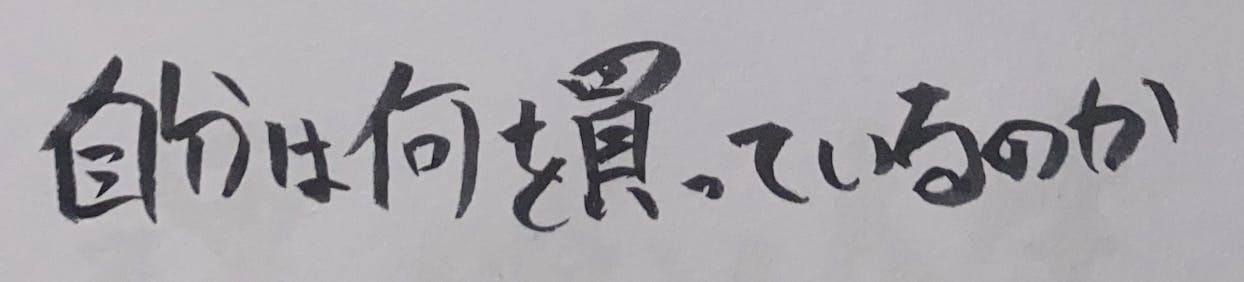 自分は何を買っているのか